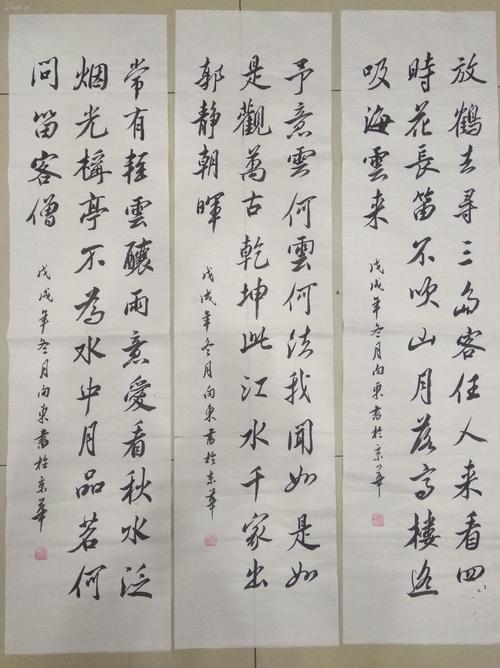 放鶴去尋三島客任人来看四
時花長笛不吹山月落高樓遥
吸海雲来
戊戌年冬月向東書於京華
予意雲何雲何法我闻如是如
是觀萬古乾坤此江水千家出
郭静朝暉
戊戌年冬月向東書於京華
常有輕雲釀雨意愛看秋水泛
烟光橋亭不為水中月品若何
問笛客僧
戊戌年冬月向東書於京華